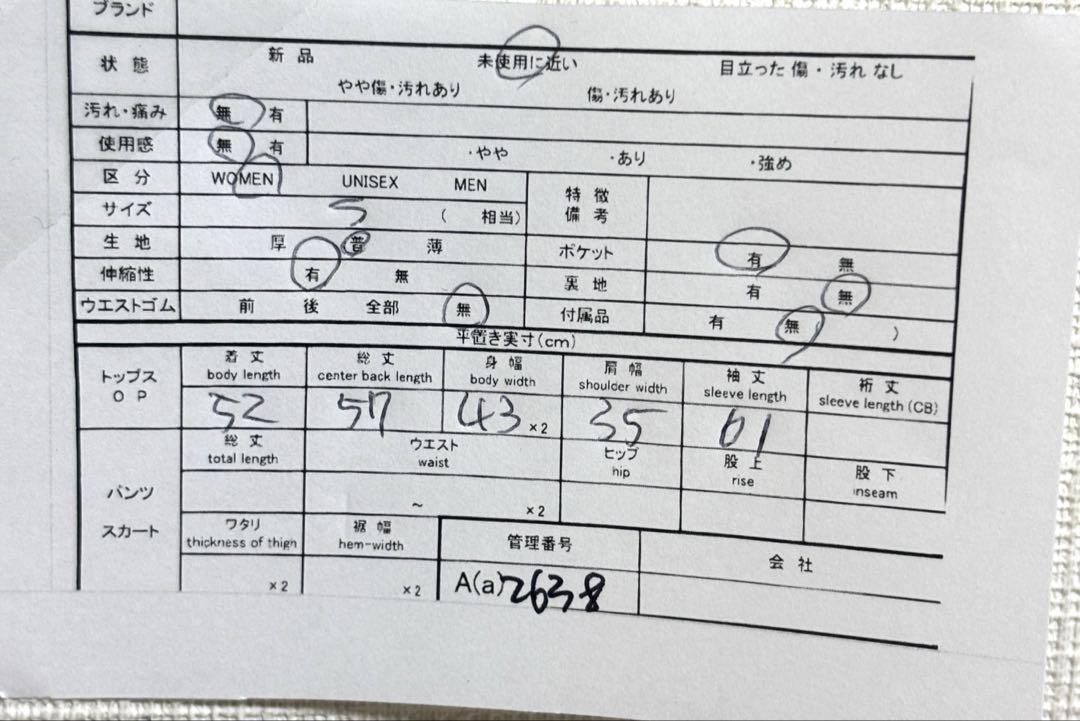 ブランド
状態 新品 未使用に近い 目立った傷・汚れなし
やや傷・汚れあり 傷・汚れあり
汚れ・痛み 無 有
使用感 無 有 ・やや ・あり ・強め
区分 WOMEN UNISEX MEN 特徴備考
サイズ S ( 相当)
生地 厚 普 薄 ポケット 有 無
伸縮性 有 無 裏地 有 無
ウエストゴム 前 後 全部 無 付属品 有 無 )
平置き実寸(cm)
トップス OP 着丈 総丈 身幅 肩幅 袖丈 裄丈
body length center back length body width shoulder width sleeve length sleeve length (CB)
52 57 43 ×2 35 61
パンツ スカート 総丈 ウエスト ヒップ 股上 股下
total length waist hip rise inseam
~ ×2
ワタリ 裾幅 管理番号 会社
thickness of thign hem-width
×2 ×2 A(a)2638